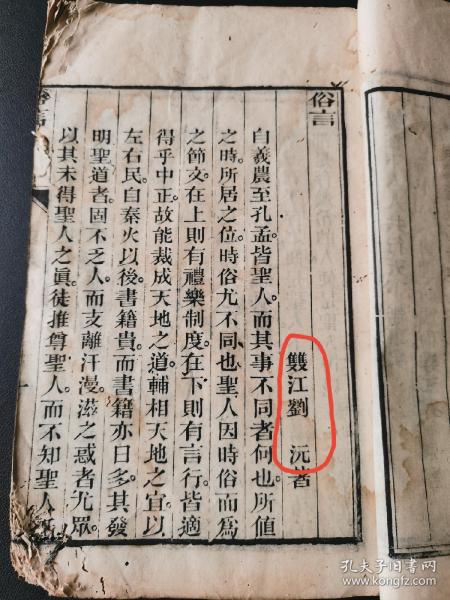 俗言
雙江劉　沅著
自義農至孔孟皆聖人而其事不同者何也所值
之時所居之位時俗尤不同也聖人因時俗而爲
之節文在上則有禮樂制度在下則有言行皆適
得乎中正故能裁成天地之道輔相天地之宜以
左右民自秦火以後書籍貴而書籍亦日多其發
明聖道者固不乏人而支離汗漫滋之惑者尤眾
以其未得聖人之眞徒推尊聖人而不知聖人
孔夫子旧书网